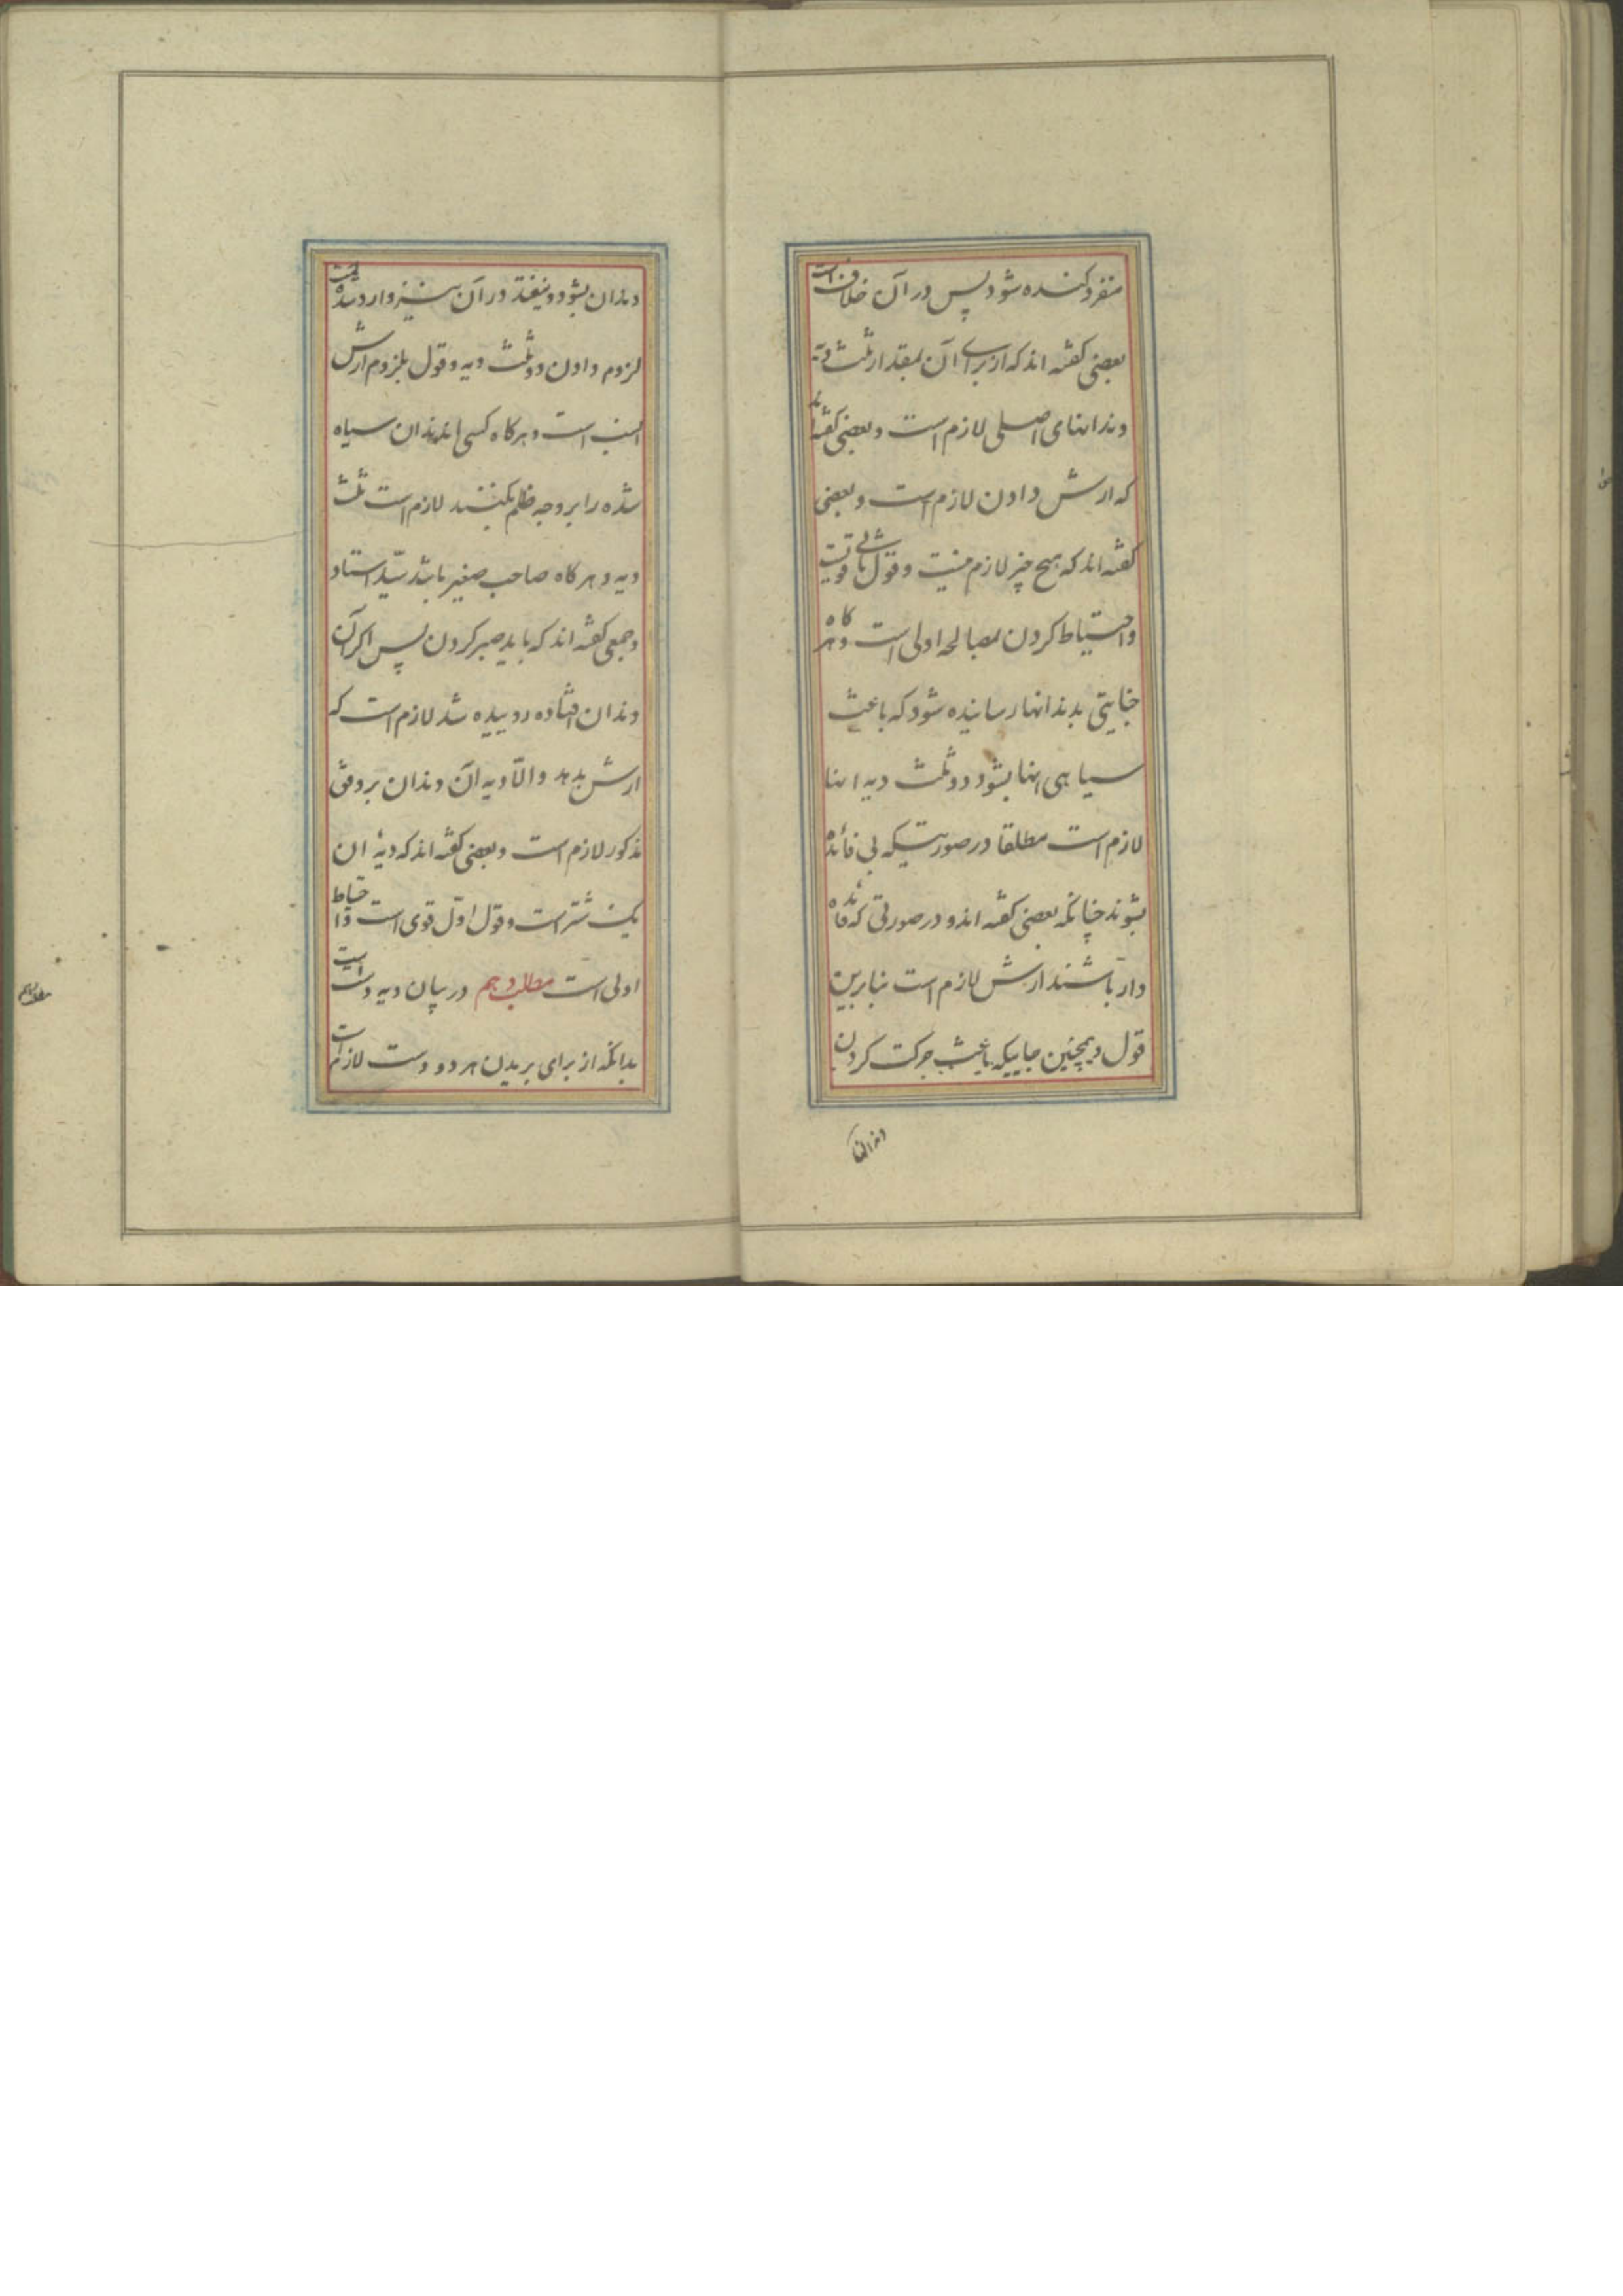 منفرد کنده شود پس در آن خلافست
بعضی گفته اند که از برای آن بمقدار ثلث دیة
دندانهای اصلی لازم است و بعضی گفته اند
که ارش دادن لازم است و بعضی
گفته اند که هیچ چیز لازم نیست و قول ثانی قویست
و احتیاط کردن بمصالحه اولی است و هرگاه
جنایتی بدندانها رسانیده شود که باعث
سیاهی انها بشود دو ثلث دیه انها
لازم است مطلقا در صورتیکه بی فائده
بشوند چنانکه بعضی گفته اند و در صورتی که فائده
دار باشند ارش لازم است بنابرین
قول و همچنین جاییکه باعث حرکت کردن
دندانها
دندان بشود و نیفتد در آن نیز وارد شده
لزوم دادن دو ثلث دیه و قول بلزوم ارش
انسب است و هرگاه کسی دندان سیاه
شده را بر وجه ظلم بکند لازم است ثلث
دیه و هرگاه صاحب صغیر باشد استاد
و جمعی گفته اند که باید صبر کردن پس اگر آن
دندان افتاده روییده شد لازم است که
ارش بدهد و الّا دیه آن دندان بر وفق
مذکور لازم است و بعضی گفته اند که دیۀ ان
یک شتر است و قول اوّل قوی است و احتیاط
اولی است مطلب دهم در بیان دیه دست است
بدانکه از برای بریدن هر دو دست لازم است